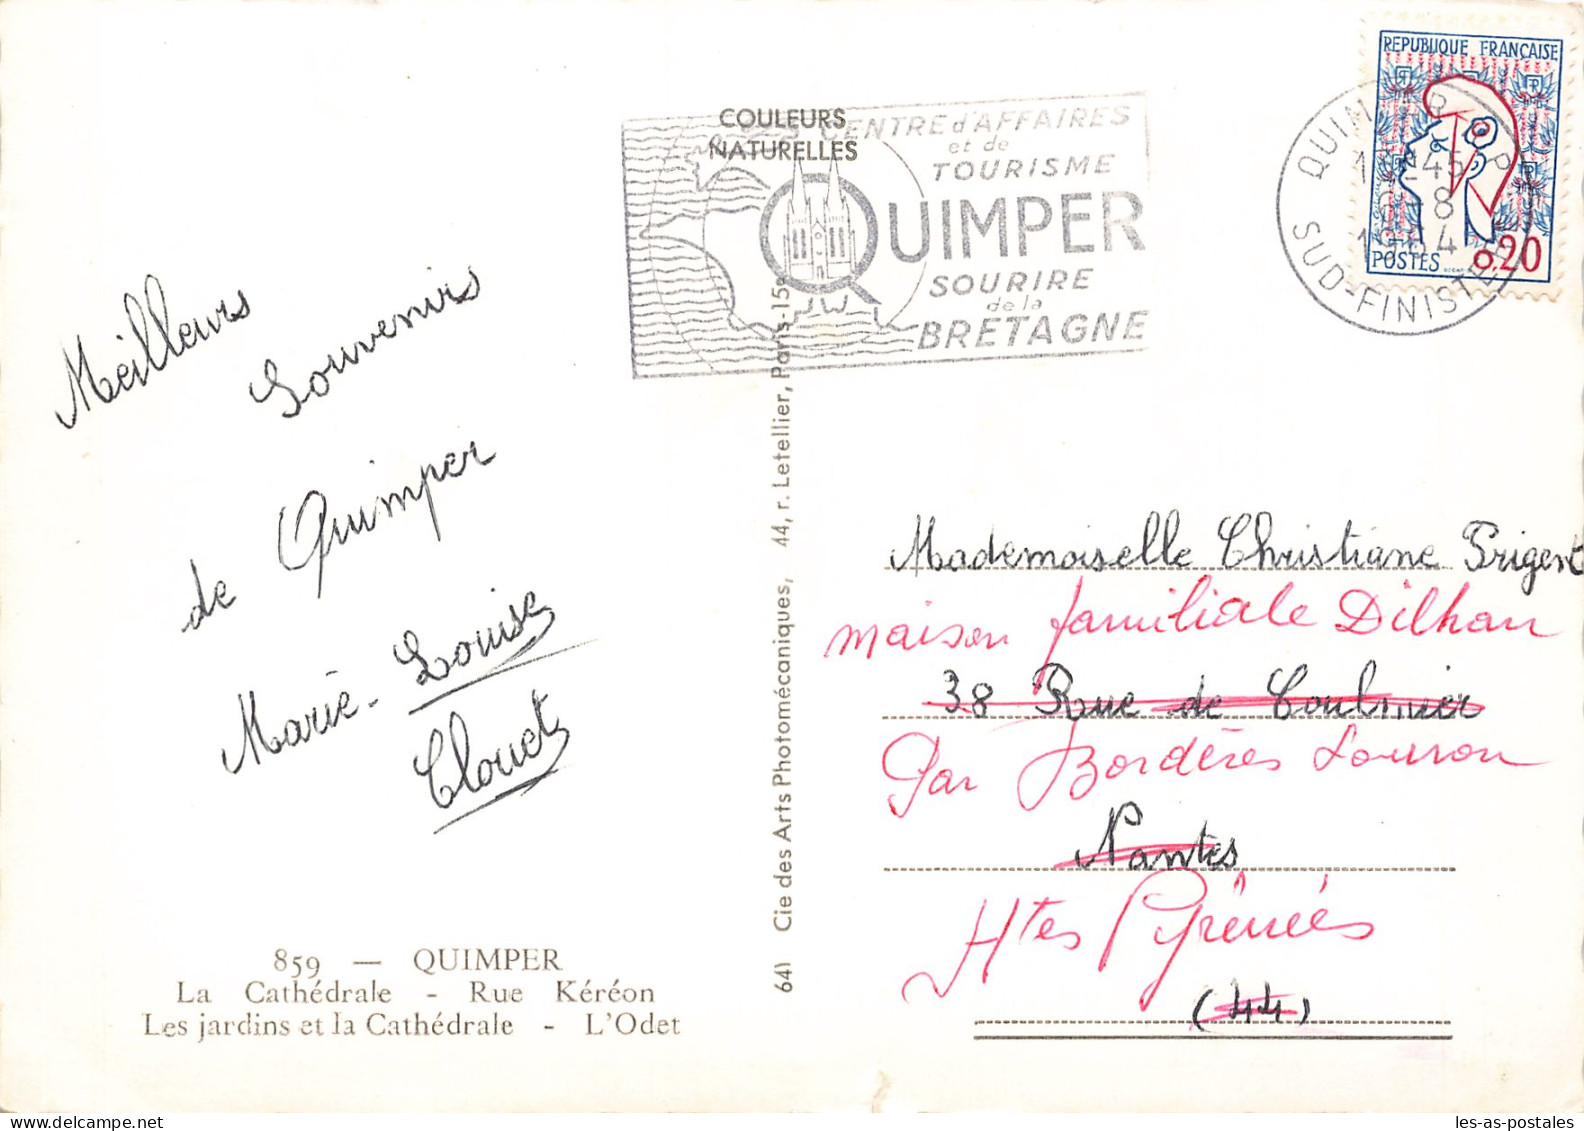 COULEURS
NATURELLES
CENTRE d'AFFAIRES
et de
TOURISME
QUIMPER
SOURIRE
de la
BRETAGNE
REPUBLIQUE FRANÇAISE
POSTES 0,20
SUD-FINISTERE
Meilleurs
Souvenirs
de Quimper
Marie-Louise
Clouet
859 — QUIMPER
La Cathédrale - Rue Kéréon
Les jardins et la Cathédrale - L'Odet
641 Cie des Arts Photomécaniques, 44, r. Letellier, Paris-15e
Mademoiselle Christiane Prigent
maison familiale Dilhan
38 Rue de Coulmier
Par Bordères Louron
Nantes
Htes Pyrénées
(44)
les-as-postales